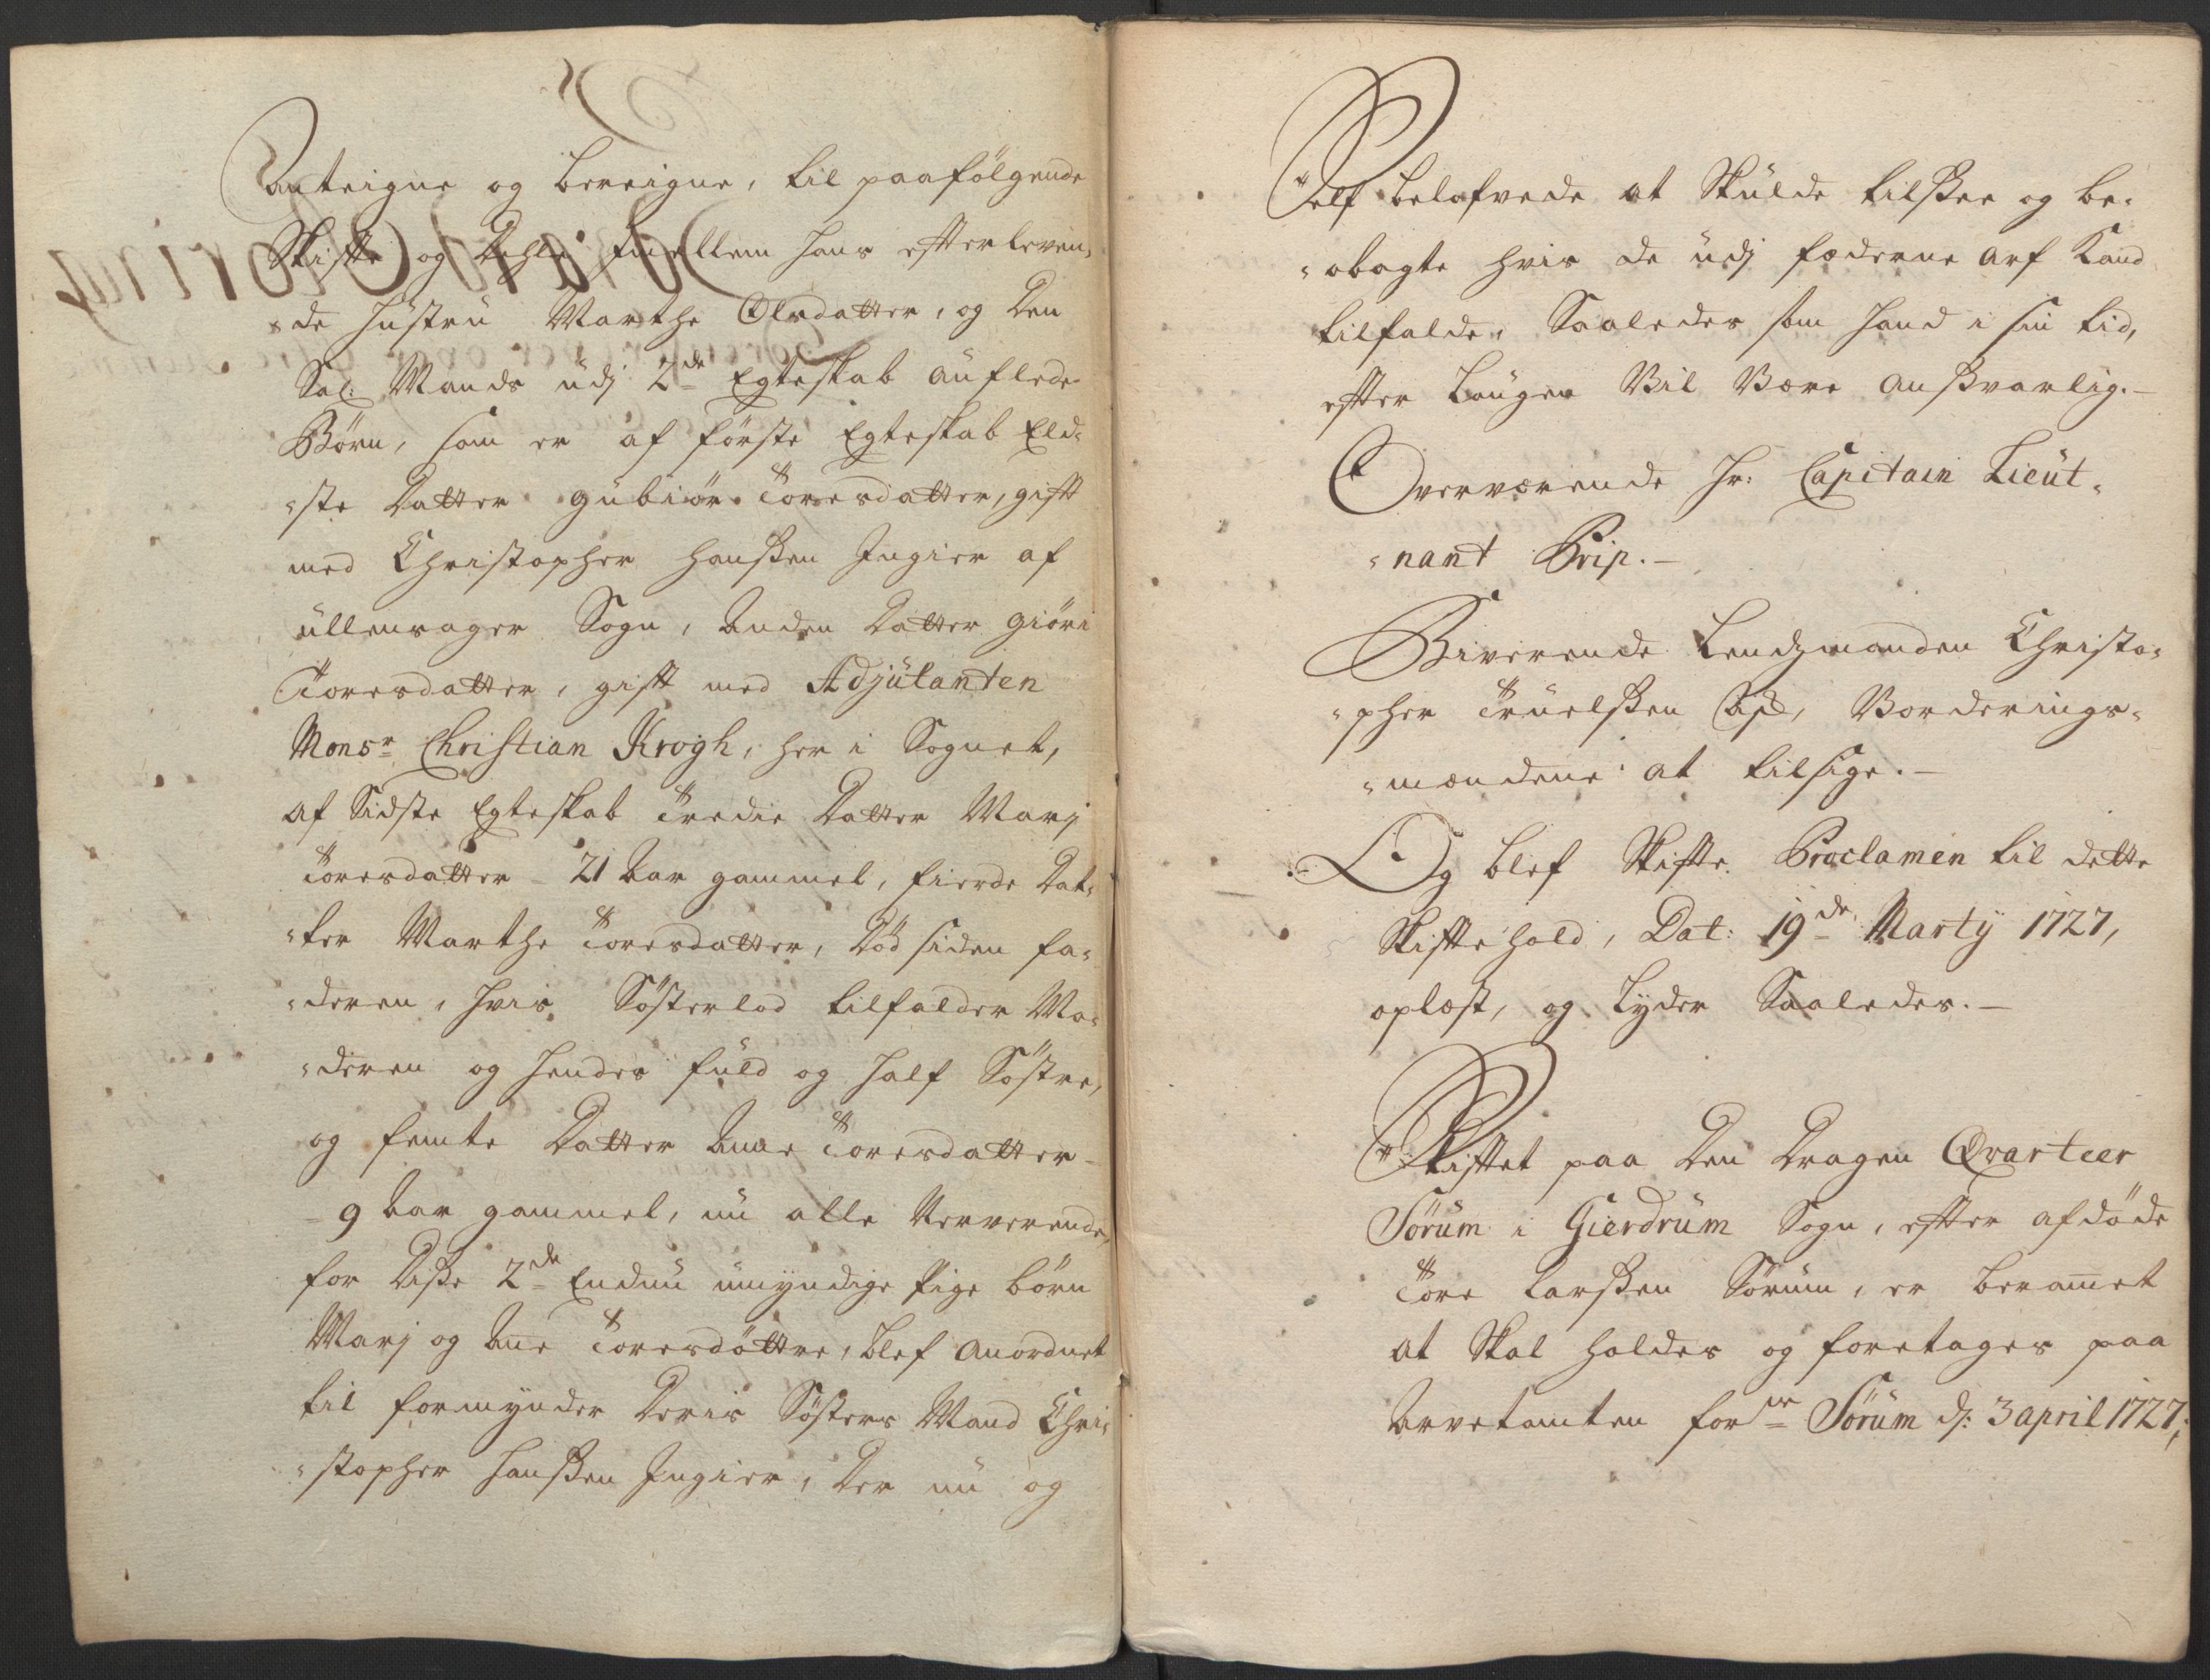 Anteigne og bereigne, til paafölgende
Skifte og Dehle Imellem hans efterleven,,
,,de Hüstrü Marthe Olsdatter, og Den
Sal: Mands üdj 2de Egteskab auflede
Börn, som er af förste Egteskab Eld,,
,,ste Datter Gübiör Toresdatter, gift
med Christopher Hanßen Ingier af
üllensager Sogn, Anden Datter Giöri
Toresdatter, gift med Adjütanten
Monsr Christian Krogh, her i Sognet,
af Sidste Egteskab Tredie Datter Marj
Toresdatter 21 Aar gammel, fierde Dat,,
,,ter Marthe Toresdatter, Död siden fa,,
,,deren, hvis Sösterlod tilfalder Mo,,
,,deren og hendes füld og half Söstre,
og femte Datter Anne Toresdatter
9 Aar gammel, nü alle Nerverende,
for Diße 2de Endnü ümyndige Pige börn
Marj og Ane Toresdöttre, blef Anordnet
til formynder Deris Sösters Mand Chri,,
,,stopher Hanßen Ingier, Der nü og
Self belofvede at Skülde tilßee og be,,
,,obagte hvis de üdj fæderne Arf Kand
tilfalde, Saaledes som hand i sin tid,
efter Laugen Vil Være Anßvarlig.
Overværende Hr: Capitain Lieüt,,
,,nant Prip.
Biverende Lendzmanden Christo,,
,,pher Trüelßen Asch, Vorderings,,
,,mændene at tilsige.
Og blef Skifte Proclamen til dette
Skiftehold, Dat: 19de Martÿ 1727,
oplæst, og Lyder Saaledes.
Skiftet paa Den Dragon Qvarteer
Sörüm i Gierdrüm Sogn, efter afdöde
Töre Larßen Sörüm, er beramet
at Skal holdes og foretages paa
Arvetomten forne Sörüm d: 3 april 1727,